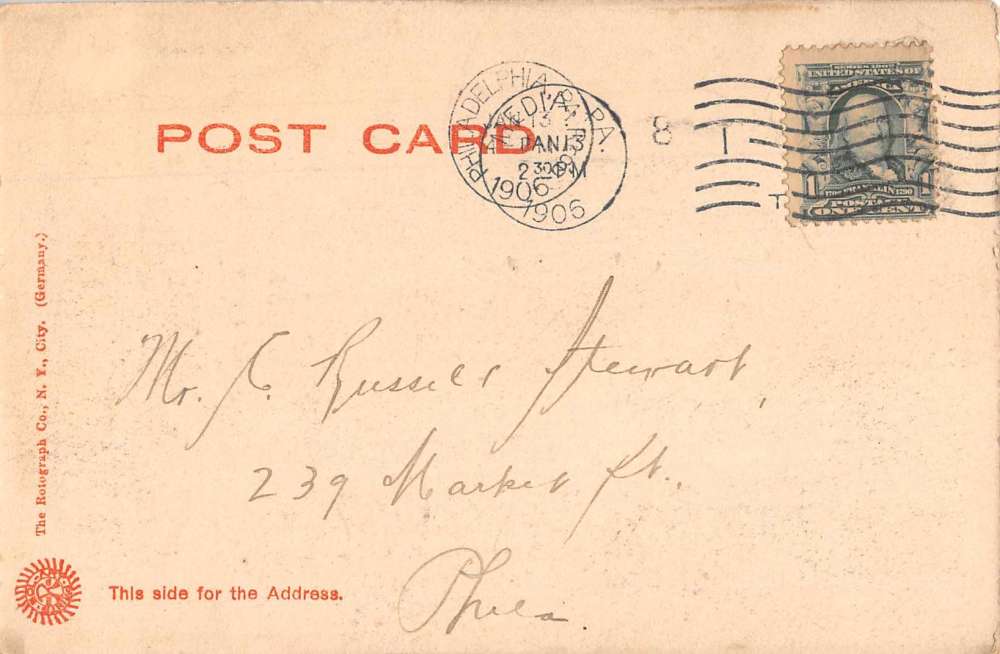 POST CARD
PHILADELPHIA, PA.
MEDIA,
JAN 13
2 30 PM
1906
1906
8
1
SERIES 1902
UNITED STATES OF
AMERICA
1706 FRANKLIN 1790
1 1
POSTAGE
ONE CENT
The Rotograph Co., N. Y., City. (Germany.)
Mr. C. Russell Stewart,
239 Market St.,
Phila.
This side for the Address.